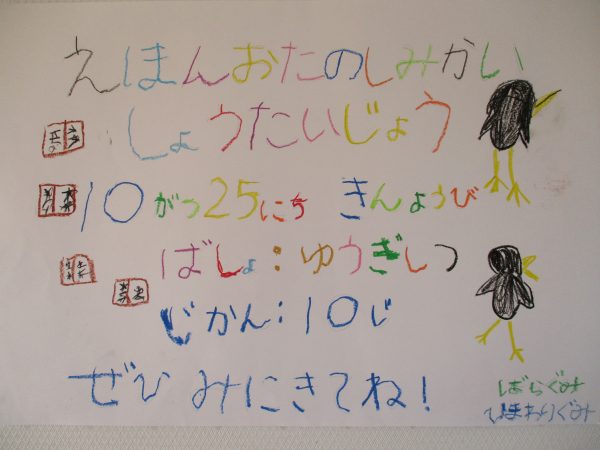 えほんおたのしみかい
しょうたいじょう
10がつ25にち きんようび
ばしょ:ゆうぎしつ
じかん:10じ
ぜひ みにきてね!
ばらぐみ
ひまわりぐみ